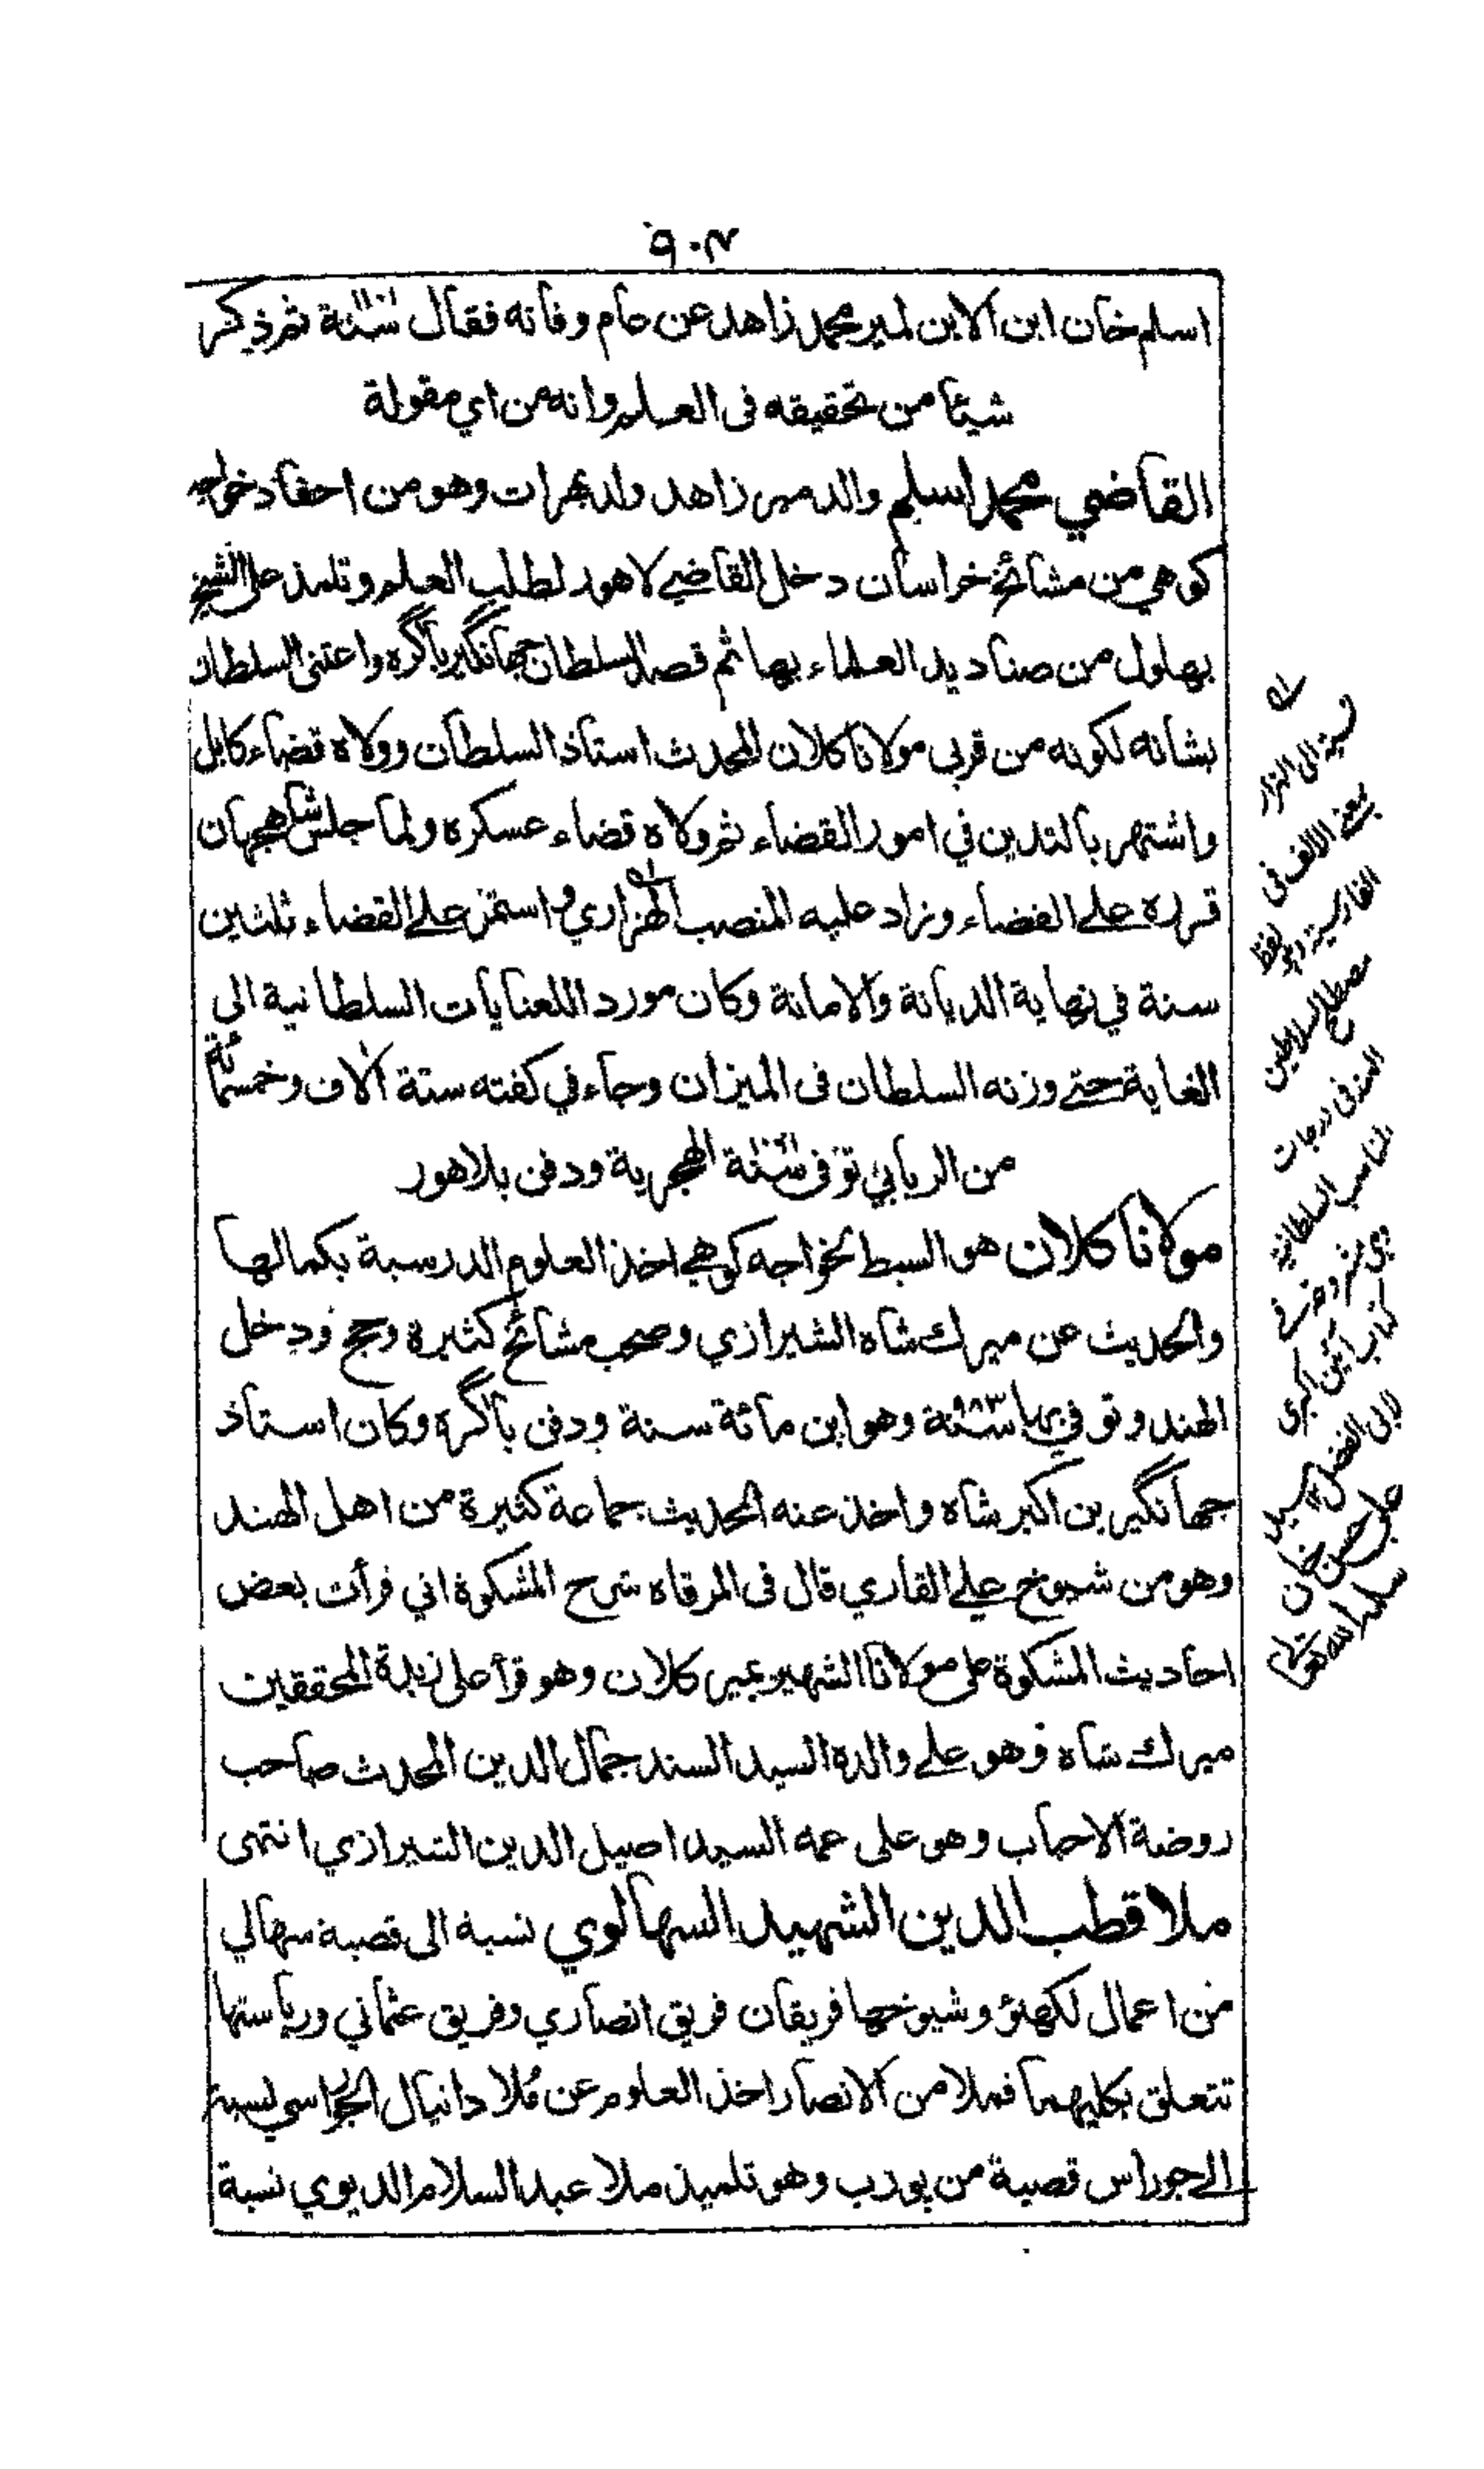 ٩٠٣
اسلم خان ابن الابن لمير محمد زاهد عن عام وفاته فقال سنة ثم ذكر
شيئا من تحقيقه في العلم وانه من اي مقولة
القاضي محمد اسلم والد مير زاهد ولد بهرات وهو من احفاد خواجه
كوهي من مشائخ خراسان دخل القاضي لاهور لطلب العلم وتلمذ على الشيخ
بهلول من صناديد العلماء بها ثم قصد السلطان جهانگير بآگره واعتنى السلطان
بشانه لكونه من قربى مولانا كلان المحدث استاذ السلطان وولاه قضاء كابل
واشتهر بالتدين في امور القضاء ثم ولاه قضاء عسكره ولما جلس شاهجهان
قرره على القضاء وزاد عليه المنصب الهزاري واستمر على القضاء ثلثين
سنة في نهاية الديانة والامانة وكان مورد اللعنايات السلطانية الى
الغاية حتى وزنه السلطان في الميزان وجاء في كفته ستة آلاف وخمسمائة
من الربابي توفي سنة الهجرية ودفن بلاهور
مولانا كلان هو السبط لخواجه كوهي اخذ العلوم الدرسية بكمالها
والحديث عن ميرك شاه الشيرازي وصحب مشائخ كثيرة وحج ودخل
الهند وتوفي بها سنة ٩٨٣ وهو ابن مائة سنة ودفن بآگره وكان استاذ
جهانگير بن اكبر شاه واخذ عنه الحديث جماعة كثيرة من اهل الهند
وهو من شيوخ علي القاري قال في المرقاه شرح المشكوة اني قرأت بعض
احاديث المشكوة على مولانا الشهير بمير كلان وهو قرأ على زبدة المحققين
ميرك شاه وهو على والده السيد السند جمال الدين المحدث صاحب
روضة الاحباب وهو على عمه السيد اصيل الدين الشيرازي انتهى
ملا قطب الدين الشهيد السهالوي نسبة الى قصبة سهالي
من اعمال لكهنؤ وشيوخها فريقان فريق انصاري وفريق عثماني ورياستها
تتعلق بكليهما فملا من الانصار اخذ العلوم عن ملا دانيال الجوراسي نسبة
الى جوراس قصبة من پورب وهو تلميذ ملا عبد السلام الديوي نسبة
نسبة الى الهزار
بمعنى الالف في
الفارسية وهو لفظ
مصطلح السلاطين
الهند في درجات
المناصب السلطانية
كتاب آئين اكبري
لابي الفضل السيد
صديق حسن خان
سلمه الله تعالى